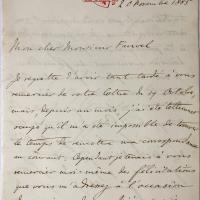 20 Novembre 1885
Mon cher Monsieur
Je regrette d'avoir tant tardé à vous
remercier de votre lettre du 19 Octobre
mais, depuis un mois, j'ai été tellement
occupé qu'il m'a été impossible de trouver
le temps de remettre ma correspondance
au courant. Cependant je tenais à vous
remercier moi-même des félicitations
que vous m'adressez à l'occasion